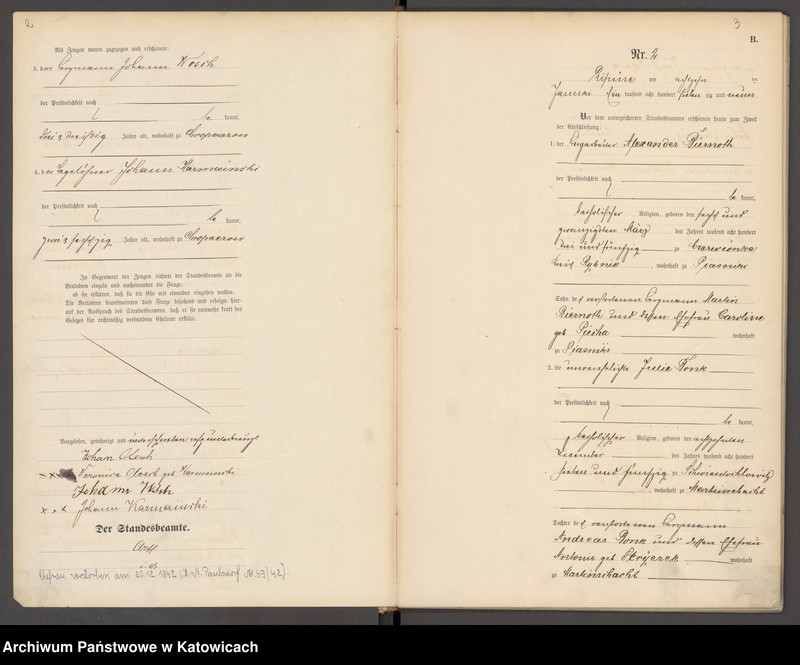 2
Als Zeugen waren zugezogen und erschienen:
3. der Bergmann Johann Wosch
der Persönlichkeit nach
be kannt,
drei und dreißig Jahre alt, wohnhaft zu
4. der Tagelöhner Johann Karmainski
der Persönlichkeit nach
be kannt,
Jahre alt, wohnhaft zu
In Gegenwart der Zeugen richtete der Standesbeamte an die
Verlobten einzeln und nacheinander die Frage:
ob sie erklären, daß sie die Ehe mit einander eingehen wollen.
Die Verlobten beantworteten diese Frage bejahend und erfolgte hier-
auf der Ausspruch des Standesbeamten, daß er sie nunmehr kraft des
Gesetzes für rechtmäßig verbundene Eheleute erkläre.
Vorgelesen, genehmigt und unterschrieben resp. unterkreuzt
Johan
xxx Veronica geb Karmainski
Johann Wosch
xxx Johann Karmainski
Der Standesbeamte.
Ehefrau verstorben am 20.12. 1942 (St. A. Paulsdorf Nr. 69/42).
3
B.
Nr. 2
Lipine am achtzehn ten
Januar Ein tausend acht hundert sieben zig und neun
Vor dem unterzeichneten Standesbeamten erschienen heute zum Zweck
der Eheschließung:
1. der Alexander Biernoth
der Persönlichkeit nach
be kannt,
katholischer Religion, geboren den sechs und
zwanzigsten März des Jahres tausend acht hundert
drei und fünfzig zu Czerwionka
Kreis Rybnik, wohnhaft zu Piasniki
Sohn des verstorbenen Bergmann Martin
Biernoth und dessen Ehefrau Caroline
geb Piecha wohnhaft
zu Piasniki
2. die unverehelichte Julie Ponk
der Persönlichkeit nach
be kannt,
katholischer Religion, geboren den achtzehnten
December des Jahres tausend acht hundert
sieben und fünfzig zu Schwientochlowitz
, wohnhaft zu Martinschacht
Tochter des verstorbenen Bergmann
Andreas Ponk und dessen Ehefrau
Antonie geb wohnhaft
zu Martinschacht
Archiwum Państwowe w Katowicach